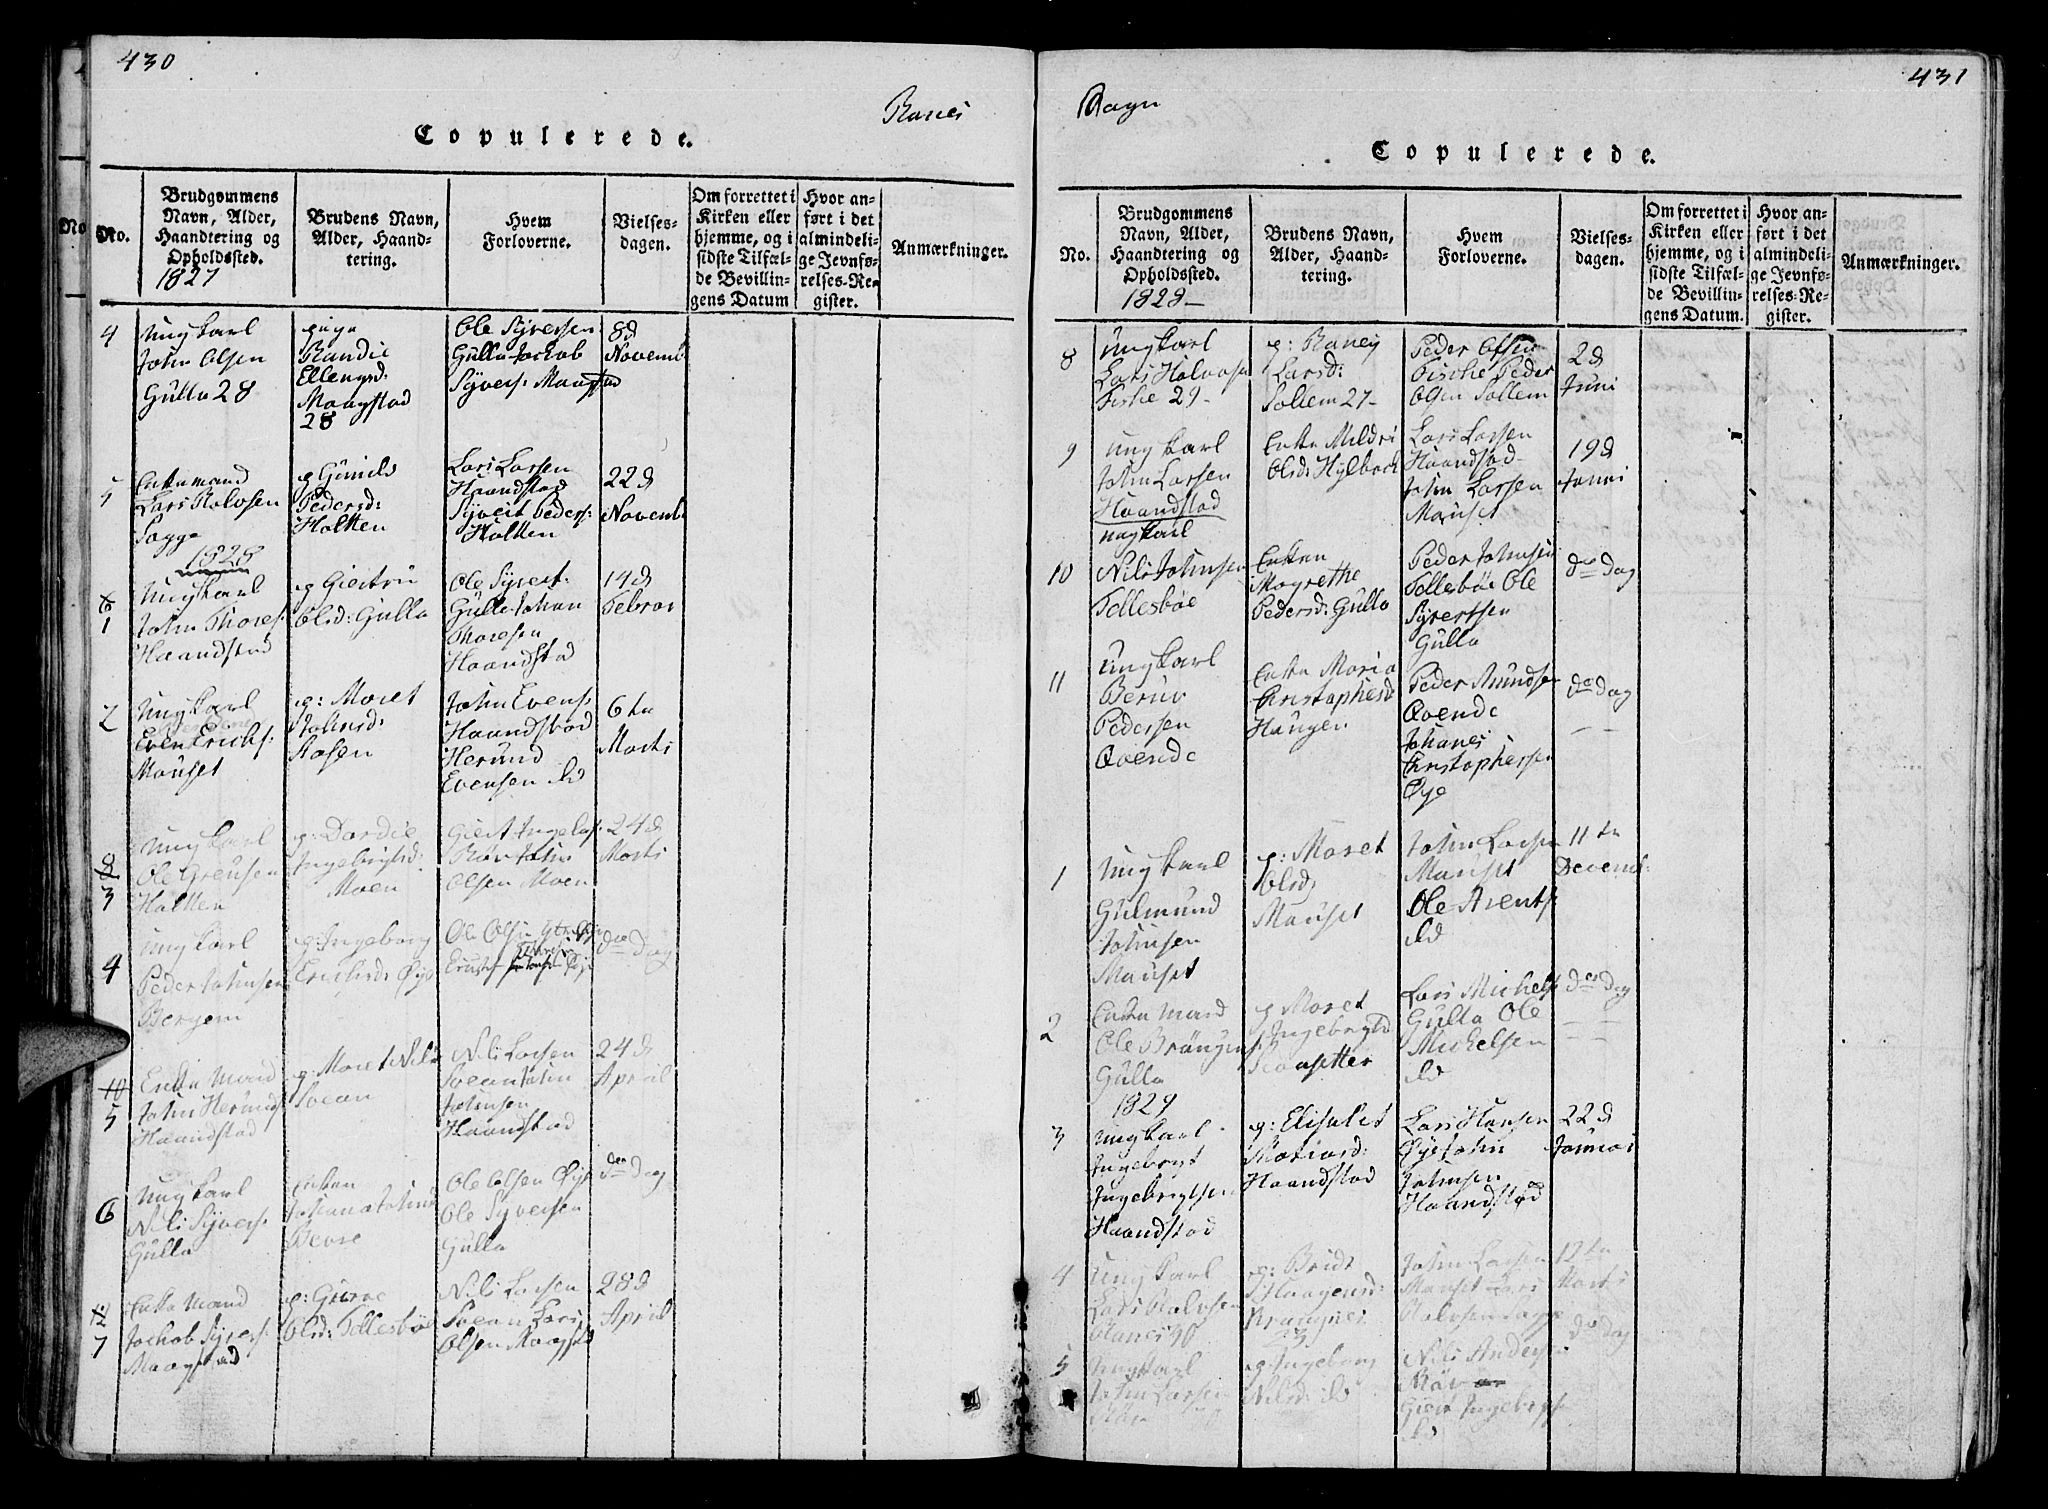 430
Ranes
Copulerede.
No.
Brudgommens
Navn, Alder,
Haandtering og
Opholdssted.
1827
Brudens Navn,
Alder, Haand-
tering.
Hvem
Forloverne.
Vielses-
dagen.
Om forrettet i
Kirken eller
hjemme, og i
sidste Tilfæl-
de Bevillin-
gens Datum
Hvor an-
ført i det
almindeli-
ge Jevnfø-
relses-Re-
gister.
Anmærkninger.
4
Ungkarl
John Olsen
Gulla 28
pige
Randie
Ellengsd:
Maagstad
28
Ole Syversen
Gulla Jachob
Syvers: Maagstad
8d
Novemb
5
Enkemand
Lars Rolvsen
Sagge
p Gunild
Pedersd:
Holten
Lars Larsen
Haandstad
Syvert Peders:
Holten
22d
Novemb
1828
1
Ungkarl
John Thores:
Haandstad
p Giertru
Olsd: Gulla
Ole Syvert:
Gulla Johan
Thoresen
Haandstad
14d
Febroar
2
Ungkarl
Even Erichs:
Mauset
p: Maret
Johnsd:
Aasen
John Evens:
Haandstad
Herund
Evensen ibd
6te
Marti
8
3
Ungkarl
Ole Greusen
Holten
p: Dordie
Ingebrigtsd:
Moen
Giert Ingebr:
Røv John
Olsen Moen
24d
Marti
4
Ungkarl
Peder Johnsen
Bergem
p: Ingeborg
Erichsd: Øye
Ole Olsen
do Dag
10
5
Enke Mand
John Herunds:
Haandstad
p: Maret Nils
Svean
Nils Larsen
Svean John
Johnsen
Haandstad
24d
April
6
Ungkarl
Nils Syvers:
Gulla
Enken
Johana Johns
Bevre
Ole Olsen Øye
Ole Syversen
Gulla
den Dag
12
7
Enke Mand
Jachob Syvers:
Maagstad
p: Gurue
Olsd: Tellesbøe
Nils Larsen
Svean Lars
Olsen Maagstad
28d
April
431
Bagn
Copulerede.
No.
Brudgommens
Navn, Alder,
Haandtering og
Opholdssted.
1828
Brudens Navn,
Alder, Haand-
tering.
Hvem
Forloverne.
Vielses-
dagen.
Om forrettet i
Kirken eller
hjemme, og i
sidste Tilfæl-
de Bevillin-
gens Datum.
Hvor an-
ført i det
almindeli-
ge Jevnfø-
relses-Re-
gister.
Anmærkninger.
8
Ungkarl
Lars Halvorsen
Fiske 29
p: Raney
Larsd:
Solem 27
Peder Olsen
Fiske Peder
Olsen Sollem
2d
Juni
9
Ungkarl
John Larsen
Haandstad
Enke Mildri
Olsd: Hylback
Lars Larsen
Haandstad
John Larsen
Mauset
19d
Juni
10
Ungkarl
Nils Johnsen
Tellesbøe
Enken
Magrethe
Pedersd: Gulla
Peder Johnsen
Tellesbøe Ole
Syvertsen
Gulla
do Dag
11
Ungkarl
Beruv
Pedersen
Qvende
Enke Maria
Christophersd
Haugen
Peder Amundsen
Qvende
Johanes
Christophersen
Øye
do Dag
1
Ungkarl
Gulmund
Johnsen
Mauset
p: Maret
Olsd
Mauset
John Larsen
Mauset
Ole Arents:
ibd
11te
Decemb:
2
Enke Mand
Ole
Gulla
p Maret
Ingebrgtd
Raasetter
Lars Michels:
Gulla Ole
Michelsen
ibd
do Dag
1829
3
Ungkarl
Ingebrgt
Ingebrigtsen
Haandstad
p: Elisabet
Mariasd:
Haandstad
Lars Hansen
Øye John
Johnsen
Haandstad
22d
Januar
4
Ungkarl
Lars Halvsen
Ranes 40
p: Bridt
Haagensd:
Krangnes
23
John Larsen
Mauset Lars
Rolvsen Sagge
12te
Marts
5
Ungkarl
John Larsen
Røv
p Ingeborg
Nilsd: ib
Nils Andersen
Røv
Giert Ingebrgts
ib
do Dag